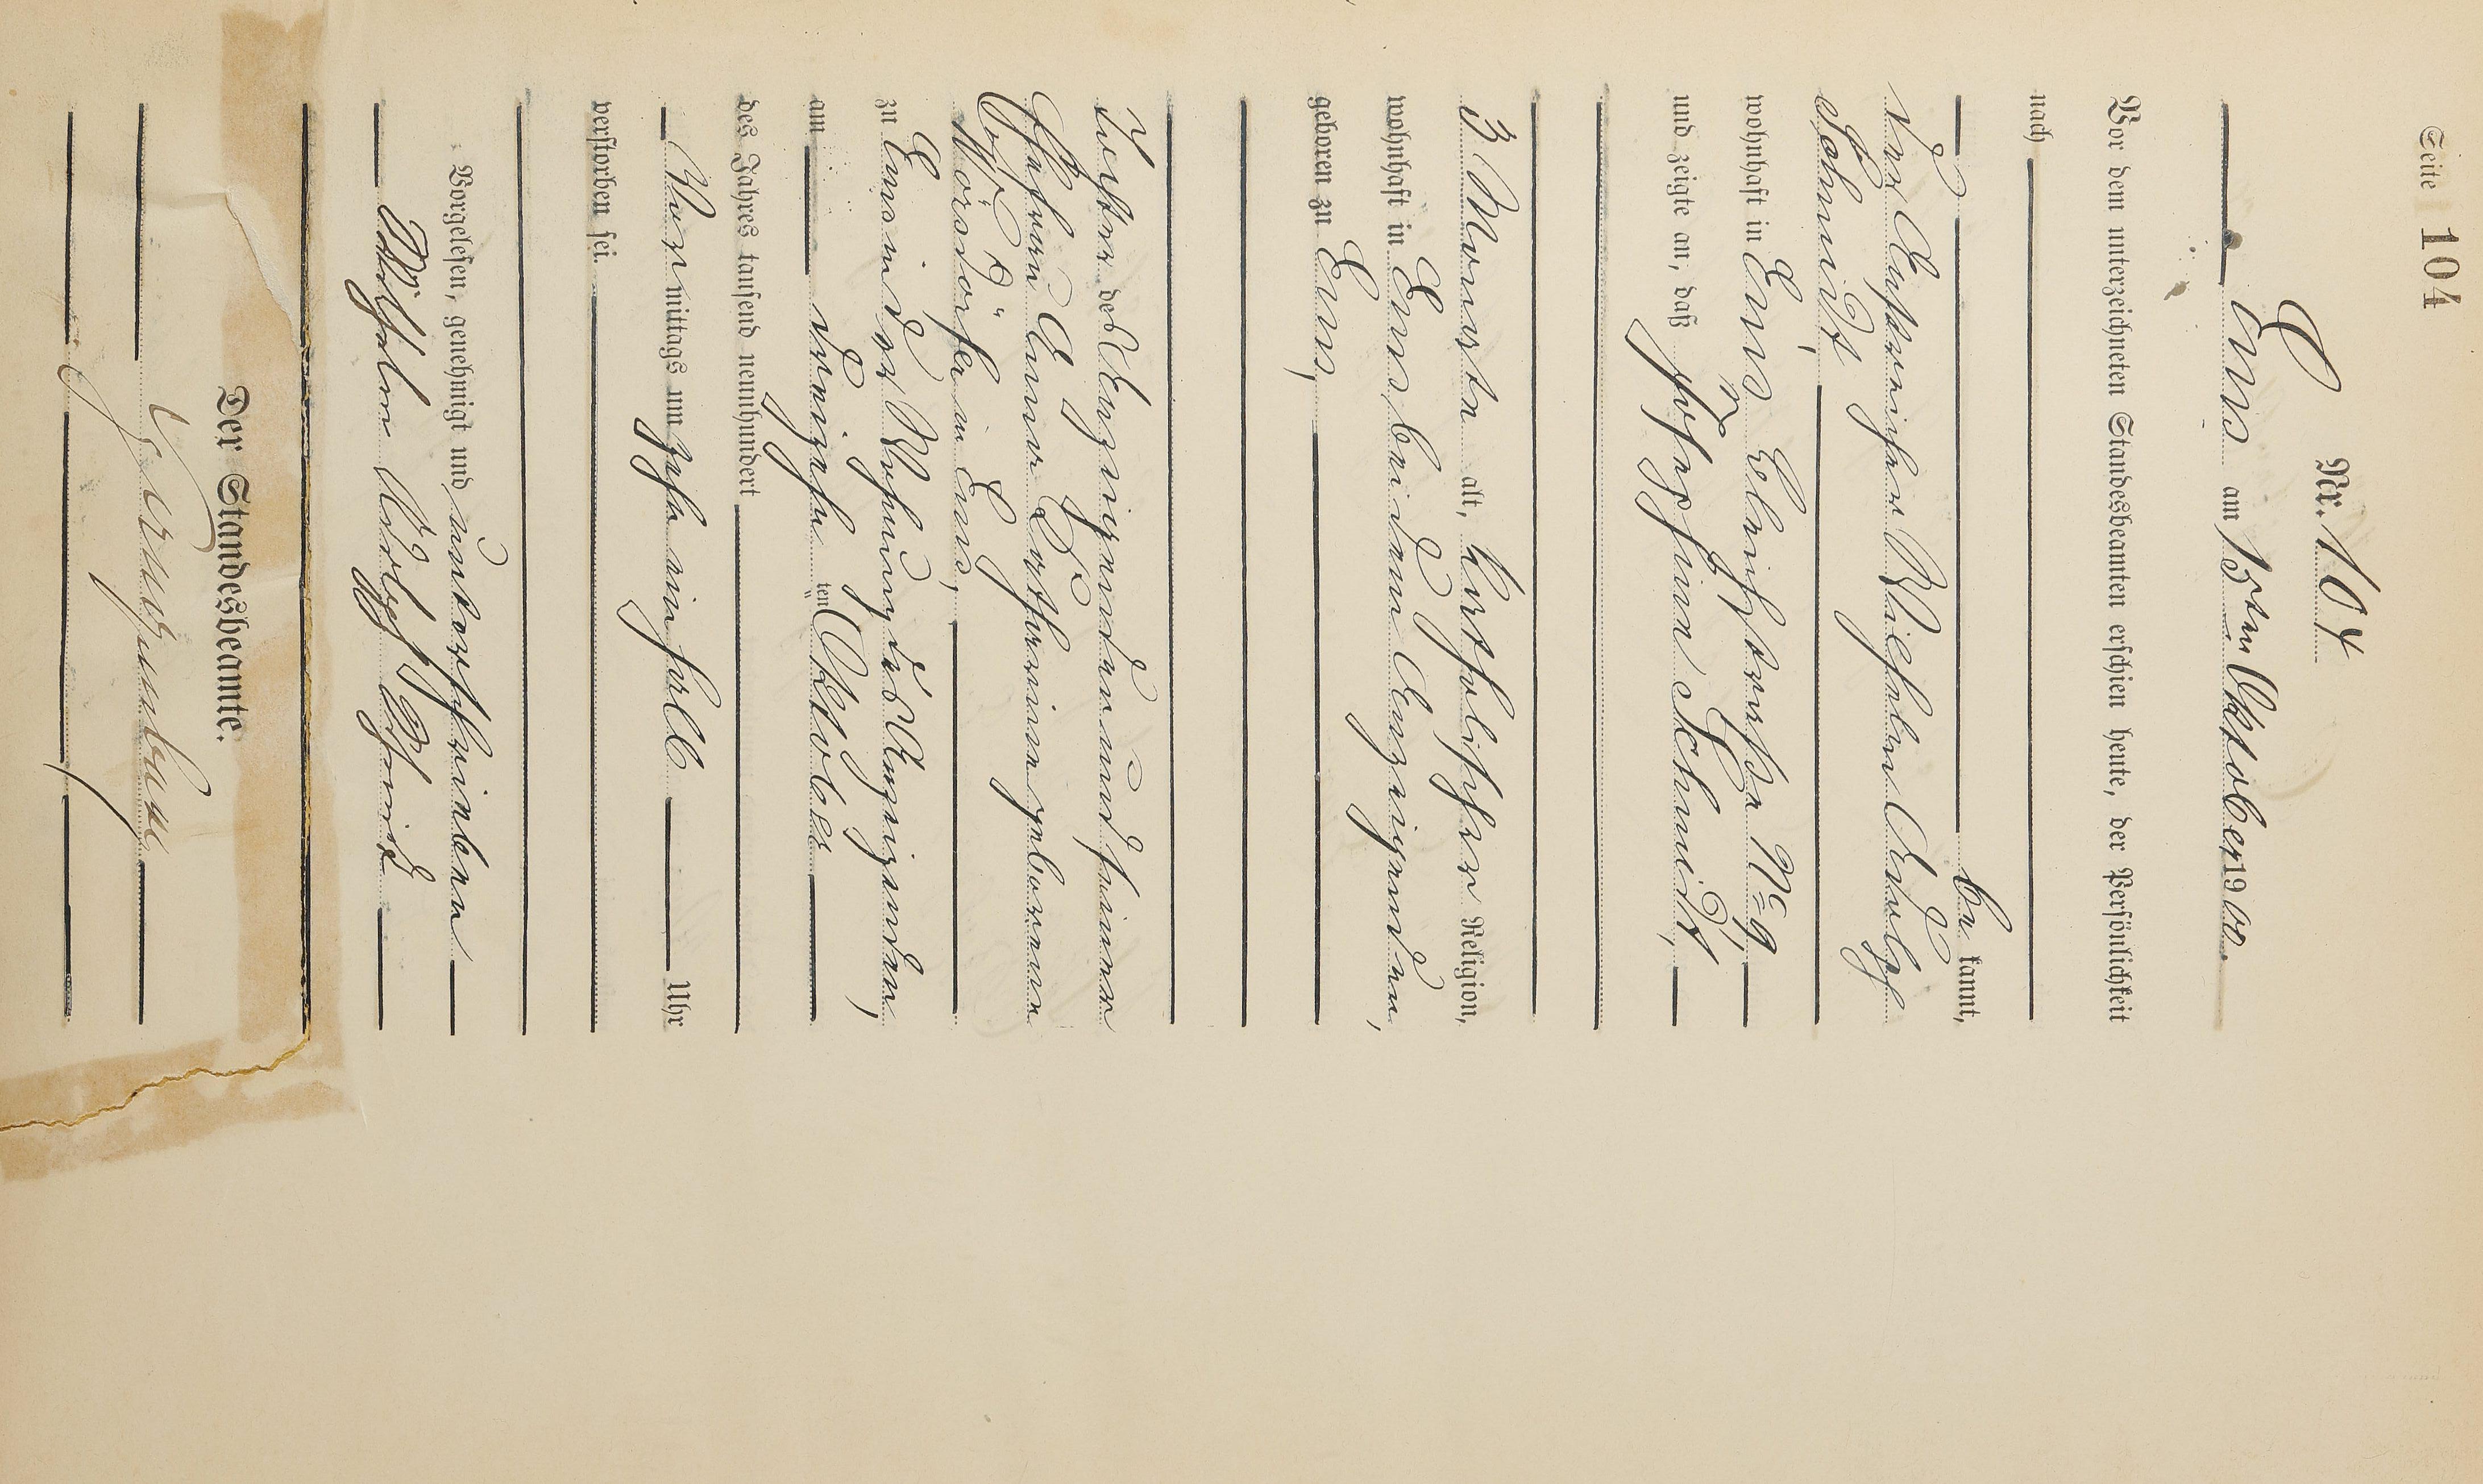 Seite 104
Nr. 104
Ems am 15ten Oktober 1900.
Vor dem unterzeichneten Standesbeamten erschien heute, der Persönlichkeit
nach
be kannt,
der Anstreicher Wilhelm Adolf
Schmidt,
wohnhaft in Ems, Bleichstraße No 9
und zeigte an, daß Josephine Schmidt,
3 Monate alt, katholischer Religion,
wohnhaft in Ems bei dem Anzeigenden,
geboren zu Ems,
Tochter des Anzeigenden und seiner
Ehefrau Anna Katharine geborene
Wörsdörfer in Ems,
zu Ems in der Wohnung des Anzeigenden,
am dreizehnten Oktober
des Jahres tausend neunhundert
Vormittags um zehn ein halb Uhr
verstorben sei.
Vorgelesen, genehmigt und unterschrieben
Wilhelm Adolf Schmidt
Der Standesbeamte.